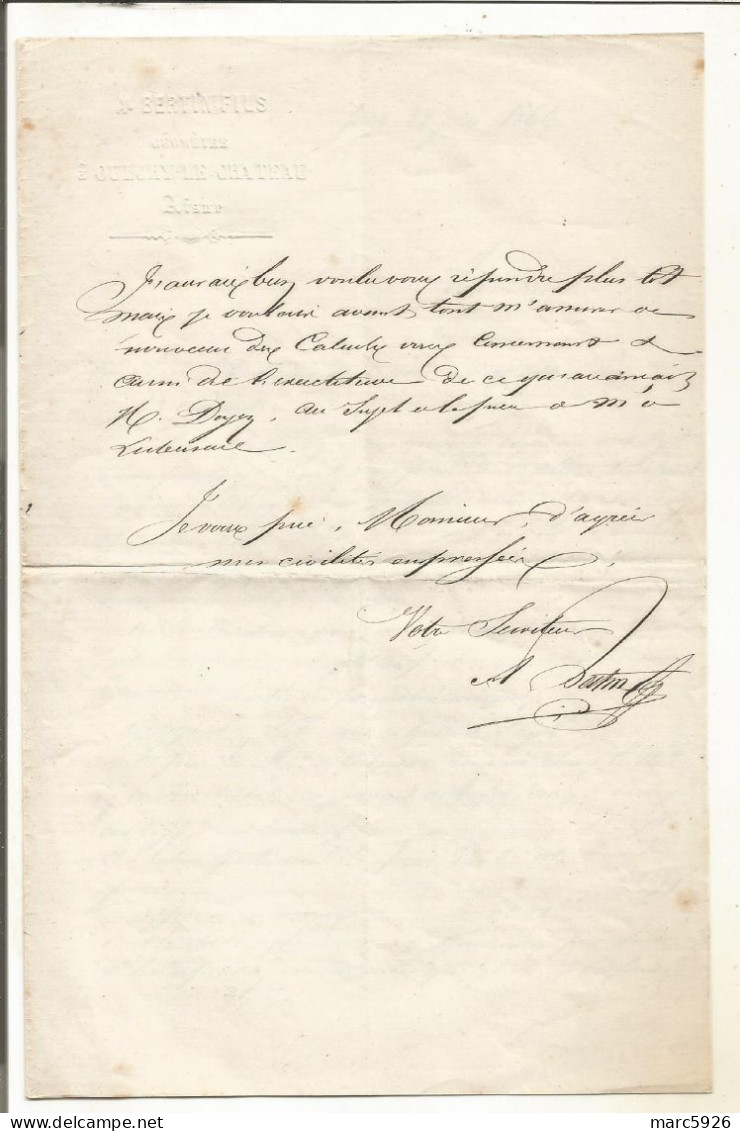 A. BERTIN FILS
GÉOMÈTRE
à OULCHY-LE-CHATEAU
Aisne
J'aurais bien voulu vous répondre plus tôt
mais je voulais avant tout m'assurer de
nouveau des Calculs vous concernant &
aussi de l'exactitude de ce que
M. Doyez, au Sujet
Je vous prie, Monsieur, d'agréer
mes civilités empressées,
Votre Serviteur
A Bertin fils
marc5926